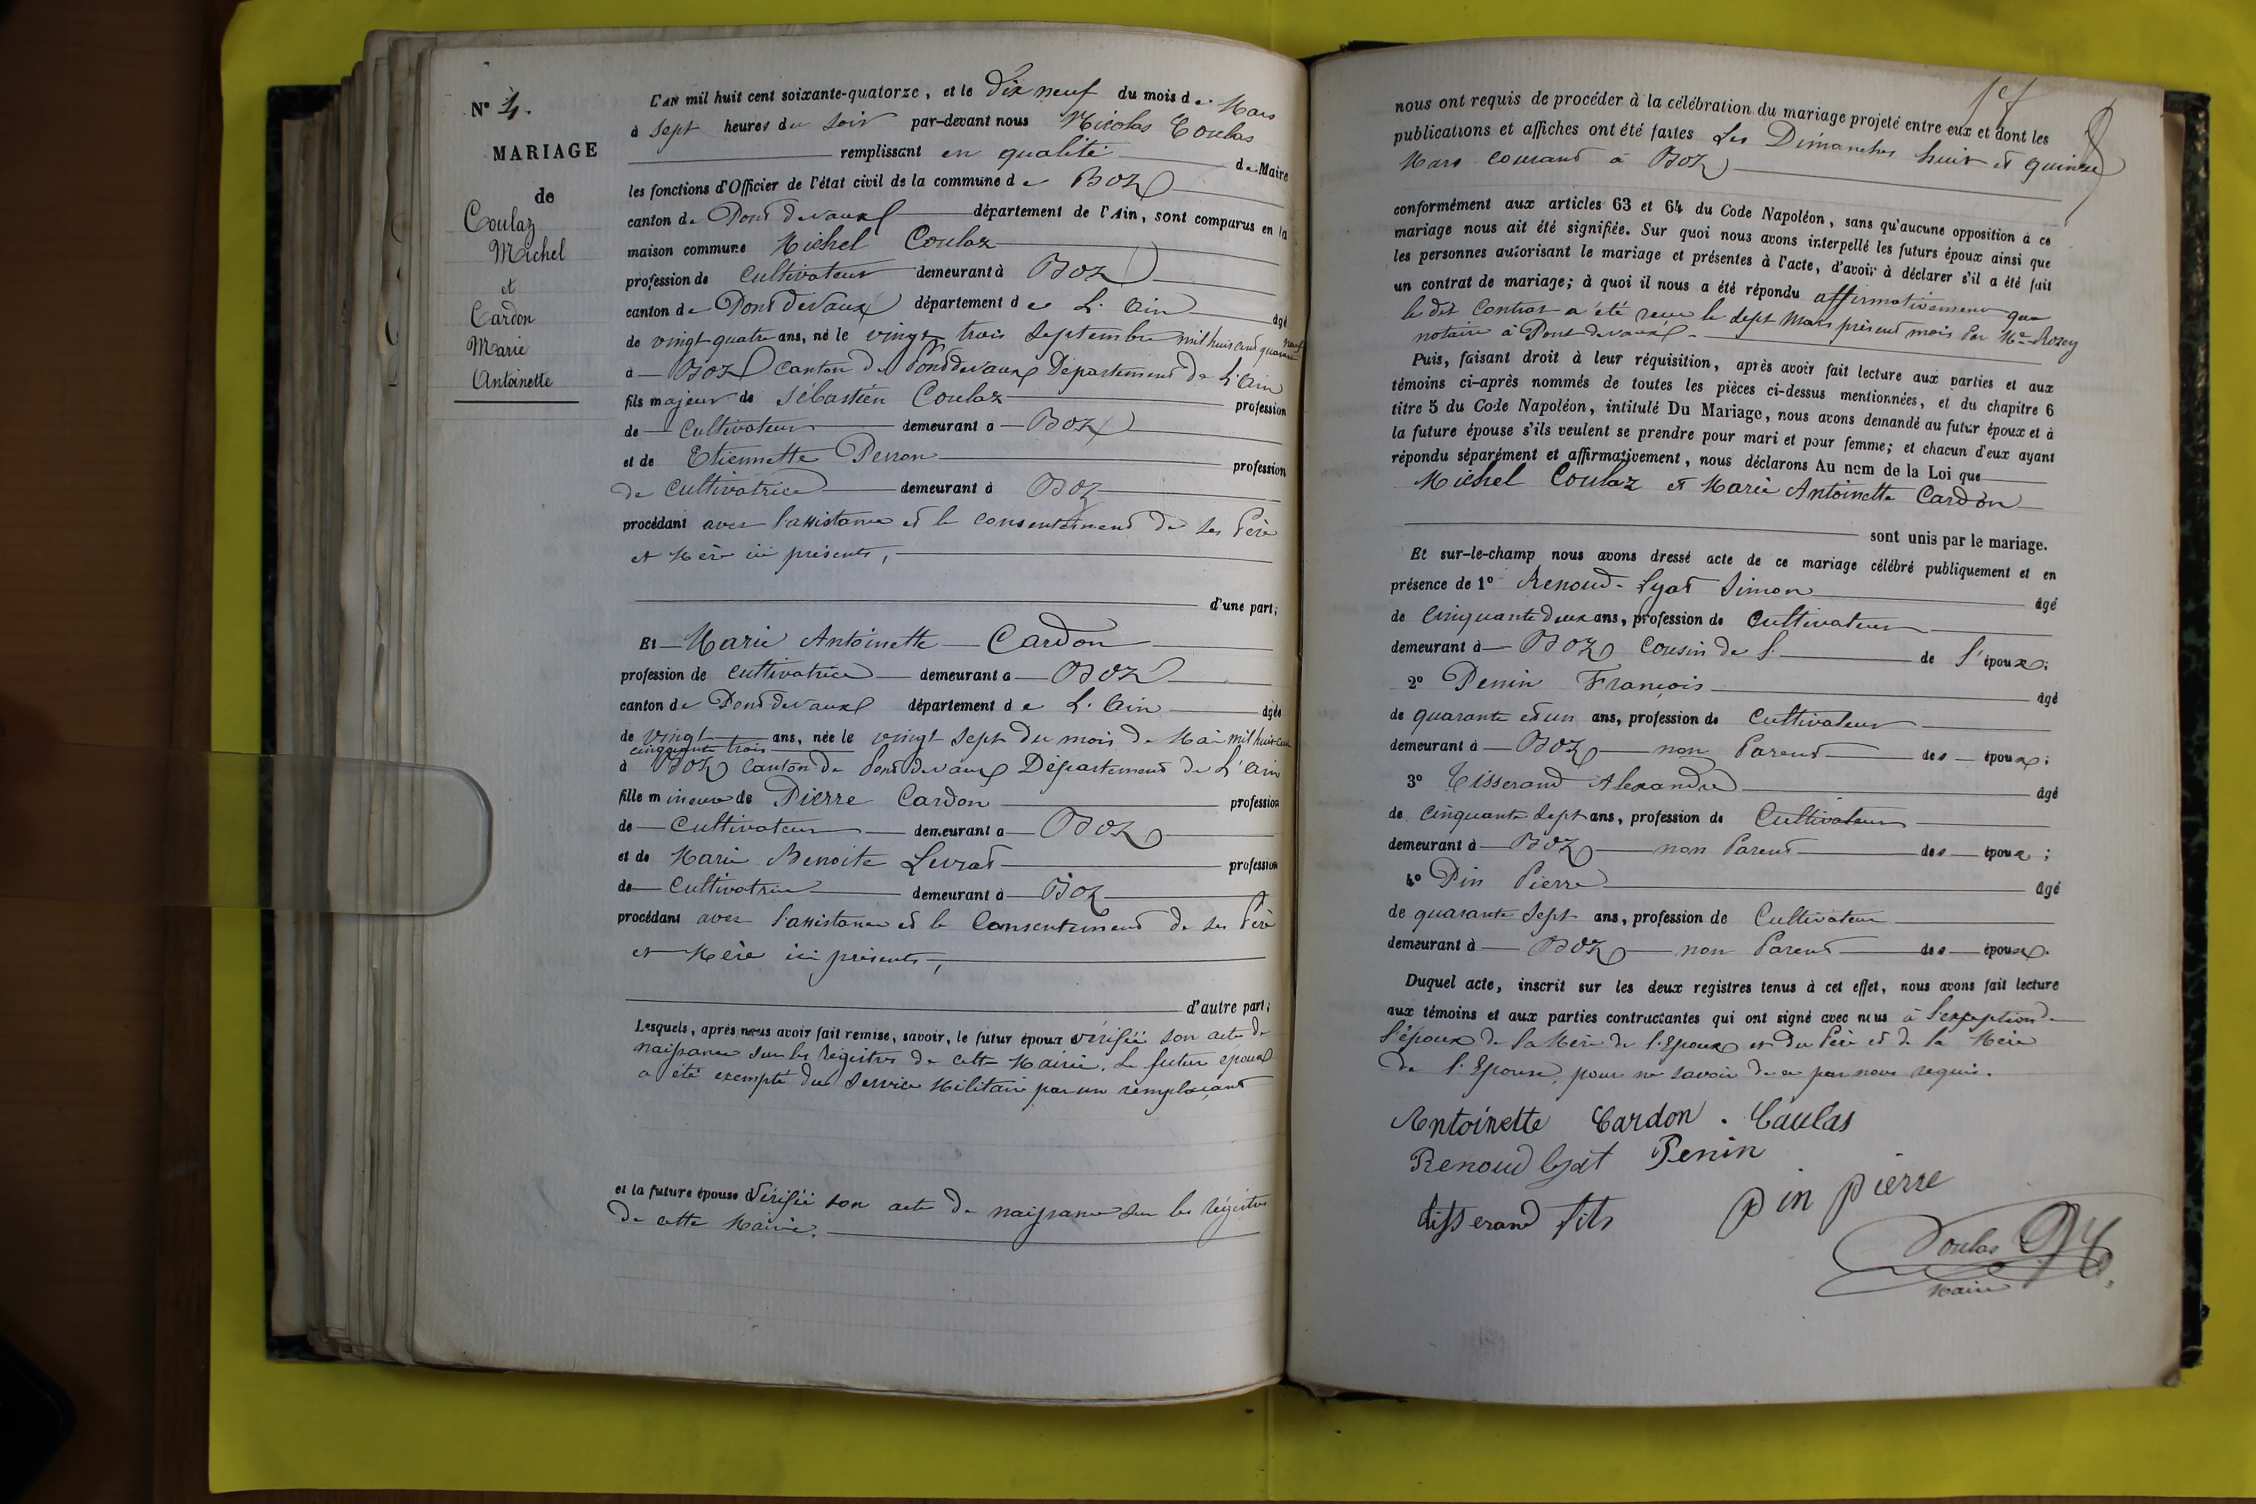 N° 4.
MARIAGE
de
Coulaz
Michel
et
Cardon
Marie
Antoinette
L'AN mil huit cent soixante-quatorze, et le Dix neuf du mois de Mars
à sept heures du soir par-devant nous Nicolas Coulas
remplissant en qualité de Maire
les fonctions d'Officier de l'état civil de la commune de Boz
canton de Pont de vaux département de l'Ain, sont comparus en la
maison commune Michel Coulaz
profession de cultivateur demeurant à Boz
canton de Pont de Vaux département de L'Ain âgé
de vingt quatre ans, né le vingt trois septembre mil huit cent quarante neuf
à Boz Canton de Pont de Vaux Département de L'Ain
fils majeur de Sébastien Coulaz profession
de Cultivateur demeurant à Boz
et de Etiennette Perron profession
de Cultivatrice demeurant à Boz
procédant avec l'assistance et le consentement de ses Père
et Mère ici présents,
d'une part;
Et Marie Antoinette Cardon
profession de cultivatrice demeurant à Boz
canton de Pont de vaux département de L'Ain âgée
de vingt ans, née le vingt sept du mois de Mai mil huit cent
cinquante trois
à Boz canton de Pont de vaux Département de L'Ain
fille mineure de Pierre Cardon profession
de Cultivateur demeurant à Boz
et de Marie Benoite Levrat profession
de Cultivatrice demeurant à Boz
procédant avec l'assistance et le Consentement de ses Père
et Mère ici présents,
d'autre part;
Lesquels, après nous avoir fait remise, savoir, le futur époux vérifié son acte de
naissance sur les régistres de cette Mairie. Le futur époux
a été exempté du service Militaire par un remplaçant
et la future épouse Vérifié son acte de naissance sur les régistres
de cette Mairie.
nous ont requis de procéder à la célébration du mariage projeté entre eux et dont les
publications et affiches ont été faites Les Dimanches huit et quinze
Mars courant à Boz
conformément aux articles 63 et 64 du Code Napoléon, sans qu'aucune opposition à ce
mariage nous ait été signifiée. Sur quoi nous avons interpellé les futurs époux ainsi que
les personnes autorisant le mariage et présentes à l'acte, d'avoir à déclarer s'il a été fait
un contrat de mariage; à quoi il nous a été répondu affirmativement que
le dit contrat a été recu le sept Mars présent mois Par Me
notaire à Pont de vaux
Puis, faisant droit à leur réquisition, après avoir fait lecture aux parties et aux
témoins ci-après nommés de toutes les pièces ci-dessus mentionnées, et du chapitre 6
titre 5 du Code Napoléon, intitulé Du Mariage, nous avons demandé au futur époux et à
la future épouse s'ils veulent se prendre pour mari et pour femme; et chacun d'eux ayant
répondu séparément et affirmativement, nous déclarons Au nom de la Loi que
Michel Coulaz et Marie Antoinette Cardon
sont unis par le mariage.
Et sur-le-champ nous avons dressé acte de ce mariage célébré publiquement et en
présence de 1° Renoud-Lyat Simon âgé
de cinquante deux ans, profession de Cultivateur
demeurant à Boz Cousin de l' de l'époux;
2° Penin François âgé
de quarante et un ans, profession de Cultivateur
demeurant à Boz non Parent des époux;
3° Tisserand Alexandre âgé
de cinquante sept ans, profession de Cultivateur
demeurant à Boz non Parent des époux;
4° Pin Pierre âgé
de quarante sept ans, profession de Cultivateur
demeurant à Boz non Parent des époux.
Duquel acte, inscrit sur les deux registres tenus à cet effet, nous avons fait lecture
aux témoins et aux parties contractantes qui ont signé avec nous à l'exception de
l'époux de la Mère de l'Epoux et du Père et de la Mère
de l'Epouse, pour ne savoir de ce par nous requis.
Antoinette Cardon. Caulas
Renoud lyat Penin
tisserand fils pin pierre
Coulas
Maire